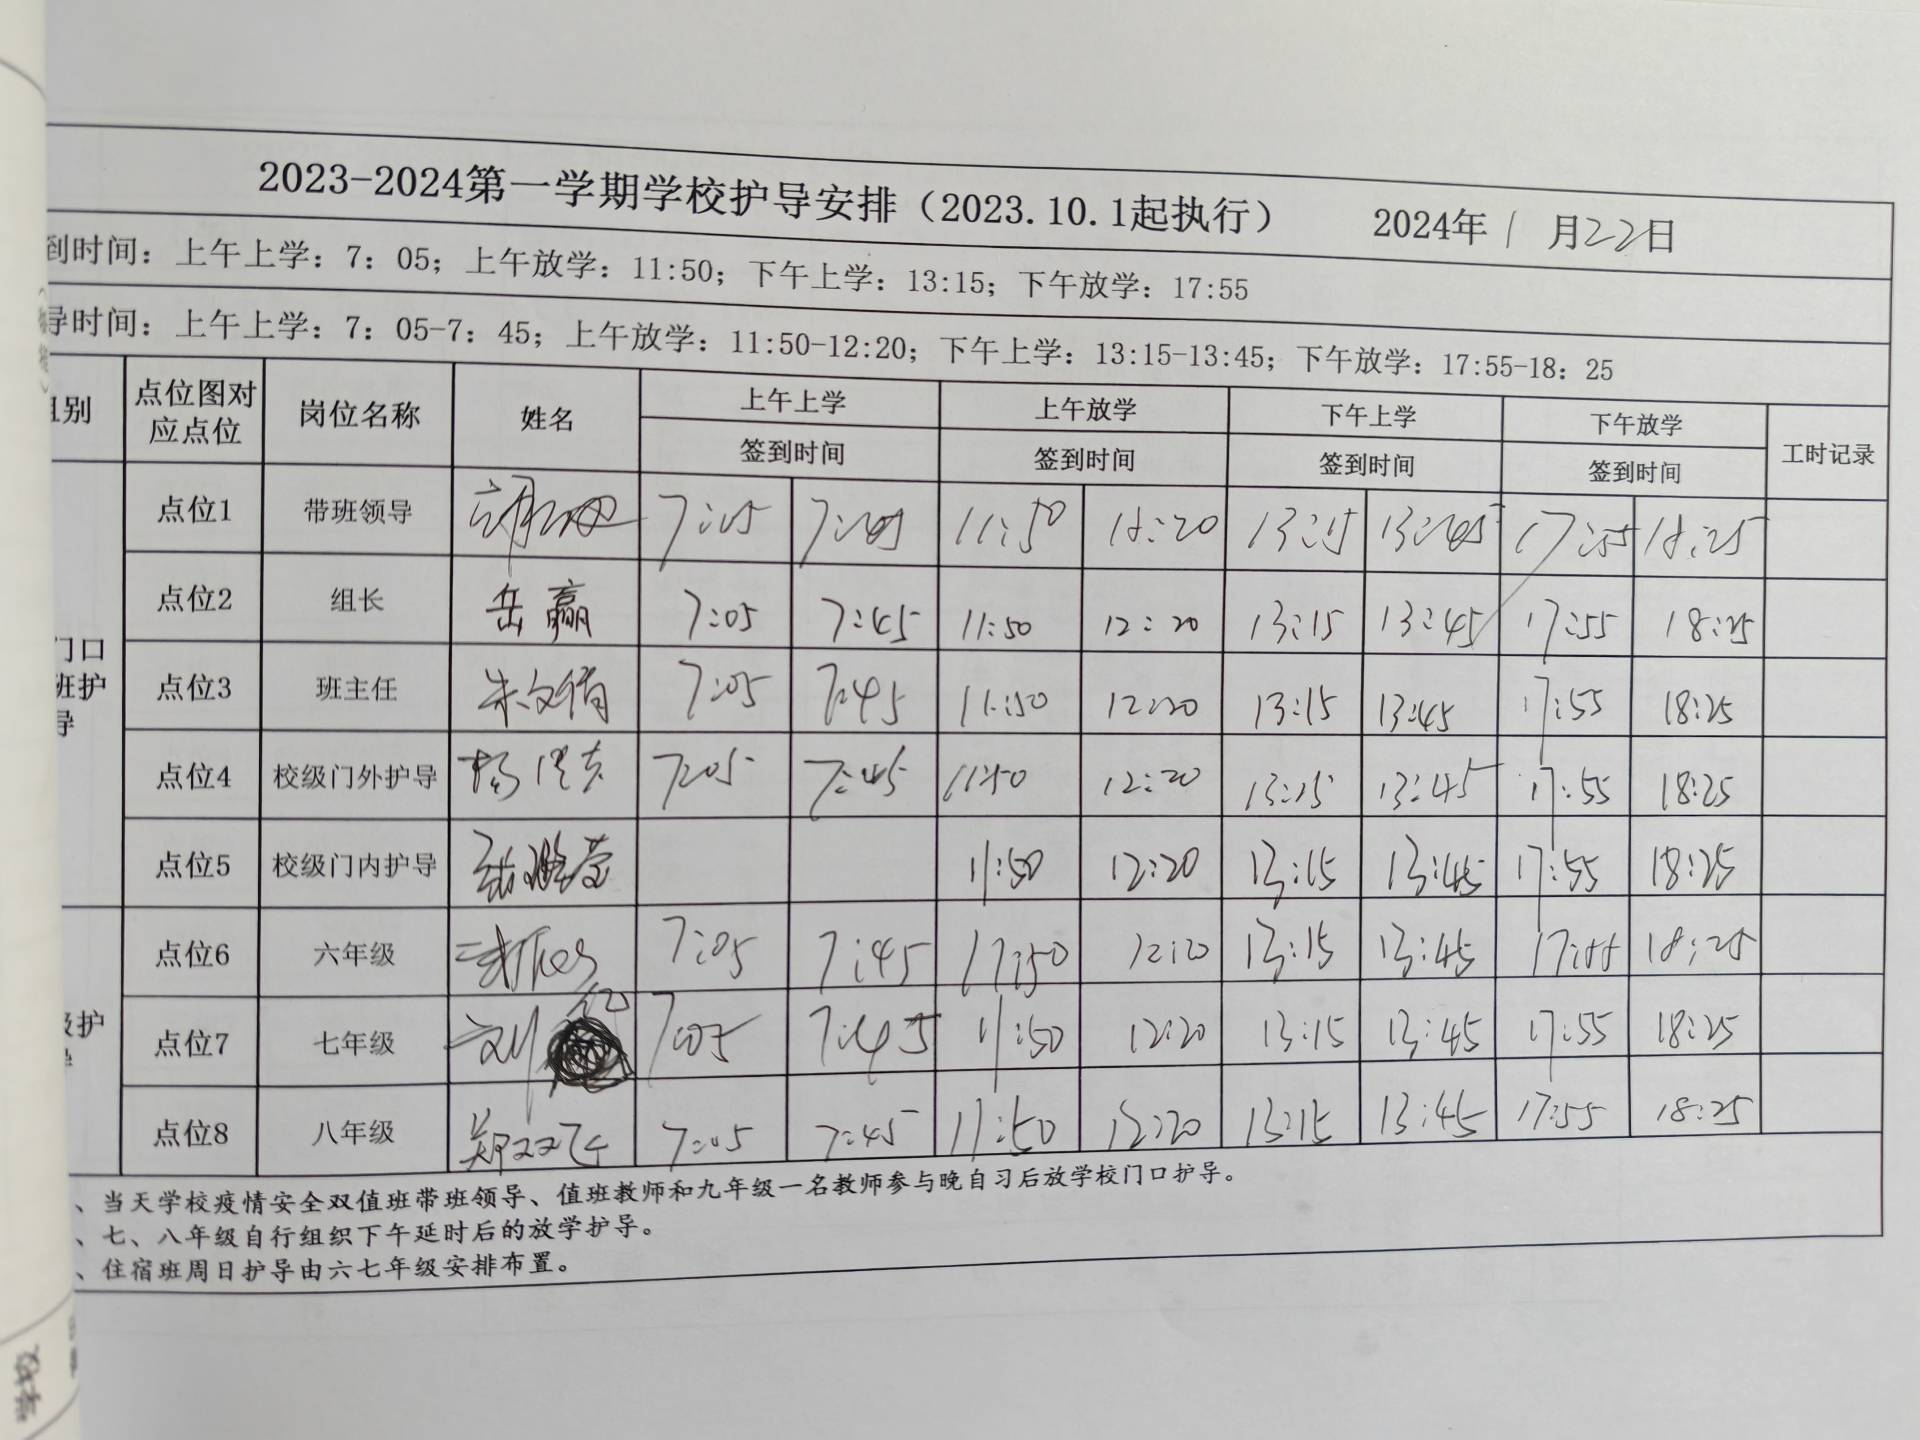 2023-2024第一学期学校护导安排（2023.10.1起执行） 2024年1月22日
到时间：上午上学：7：05；上午放学：11:50；下午上学：13:15；下午放学：17:55
导时间：上午上学：7：05-7：45；上午放学：11:50-12:20；下午上学：13:15-13:45；下午放学：17:55-18：25
组别 点位图对应点位 岗位名称 姓名 上午上学 上午放学 下午上学 下午放学 工时记录
签到时间 签到时间 签到时间 签到时间
门口
班护
导
点位1 带班领导 7:05 7:45 11:50 13:15 13:45 17:55 18:25
点位2 组长 岳赢 7:05 7:45 11:50 12:20 13:15 13:45 17:55 18:25
点位3 班主任 朱文倩 7:05 7:45 11:50 12:20 13:15 13:45 17:55 18:25
点位4 校级门外护导 杨 7:05 7:45 11:50 12:20 13:15 13:45 17:55 18:25
点位5 校级门内护导 11:50 12:20 13:15 13:45 17:55 18:25
级护
导
点位6 六年级 7:05 7:45 11:50 12:20 13:15 13:45 17:55 18:25
点位7 七年级 刘红 7:05 7:45 11:50 12:20 13:15 13:45 17:55 18:25
点位8 八年级 郑双飞 7:05 7:45 11:50 12:20 13:15 13:45 17:55 18:25
、当天学校疫情安全双值班带班领导、值班教师和九年级一名教师参与晚自习后放学校门口护导。
、七、八年级自行组织下午延时后的放学护导。
、住宿班周日护导由六七年级安排布置。